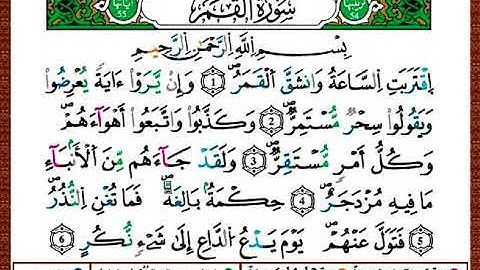 آياتها 55 سُورَةُ القَمَرِ ترتيبها 54
بِسْمِ اللَّهِ الرَّحْمَٰنِ الرَّحِيمِ
اِقْتَرَبَتِ السَّاعَةُ وَانشَقَّ الْقَمَرُ 1 وَإِنْ يَّرَوْا ءَايَةً يُعْرِضُوا
وَيَقُولُوا سِحْرٌ مُّسْتَمِرٌّ 2 وَكَذَّبُوا وَاتَّبَعُوا أَهْوَاءَهُمْ
وَكُلُّ أَمْرٍ مُّسْتَقِرٌّ 3 وَلَقَدْ جَاءَهُم مِّنَ الْأَنبَاءِ
مَا فِيهِ مُزْدَجَرٌ 4 حِكْمَةٌ بَالِغَةٌ فَمَا تُغْنِ النُّذُرُ
5 فَتَوَلَّ عَنْهُمْ يَوْمَ يَدْعُ الدَّاعِ إِلَى شَيْءٍ نُّكُرٍ 6